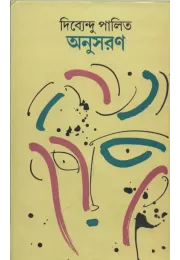 দিব্যেন্দু পালিত
অনুসরণ